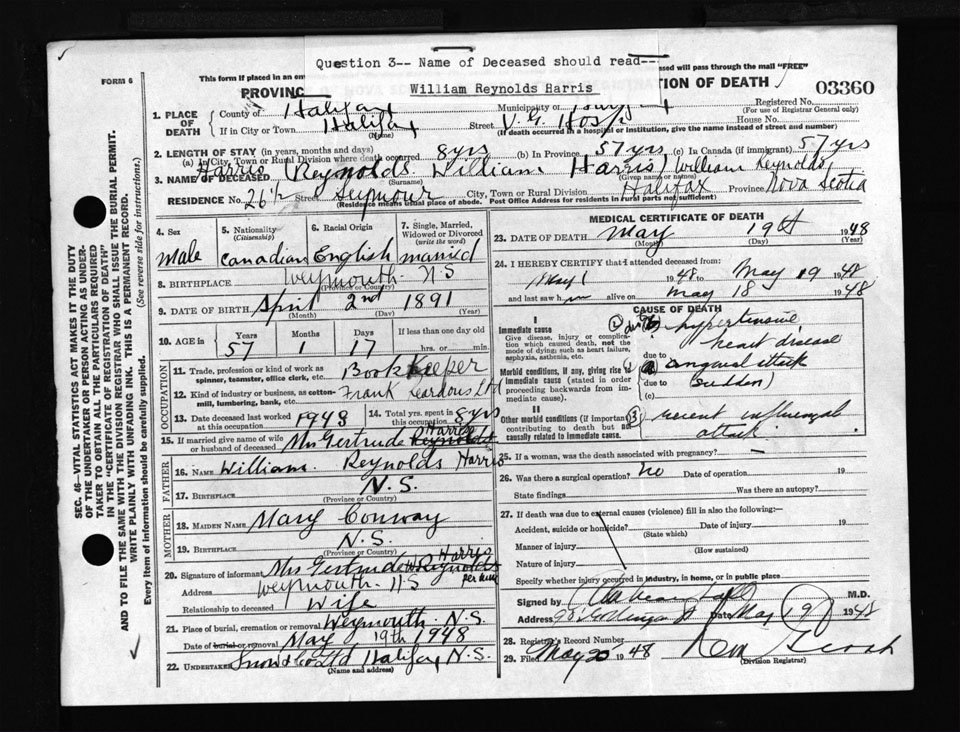 Question 3-- Name of Deceased should read---
William Reynolds Harris
FORM 6
This form if placed in an en
ssed will pass through the mail "FREE"
PROVINC
TION OF DEATH
03360
1. PLACE OF DEATH
County of Halifax
Municipality of
Registered No.
(For use of Registrar General only)
If in City or Town Halifax Street V. G. Hosp. House No.
(Name) (If death occurred in a hospital or institution, give the name instead of street and number)
2. LENGTH OF STAY (in years, months and days)
(a) In City, Town or Rural Division where death occurred 8 yrs (b) In Province 57 yrs (c) In Canada (if immigrant) 57 yrs
3. NAME OF DECEASED Harris (Reynolds. William Harris) (William Reynolds)
(Surname) (Given name or names)
RESIDENCE No. 26½ Street Seymour City, Town or Rural Division Halifax Province Nova Scotia
(Residence means usual place of abode. Post Office Address for residents in rural parts not sufficient)
4. Sex
male
5. Nationality
(Citizenship)
Canadian
6. Racial Origin
English
7. Single, Married, Widowed or Divorced
(write the word)
married
8. BIRTHPLACE Weymouth N S
(Province or Country)
9. DATE OF BIRTH April 2nd 1891
(Month) (Day) (Year)
10. AGE in
Years Months Days If less than one day old
57 1 17 hrs. or min.
OCCUPATION
11. Trade, profession or kind of work as spinner, teamster, office clerk, etc. Book Keeper
12. Kind of industry or business, as cotton-mill, lumbering, bank, etc. Frank Reardons Ltd
13. Date deceased last worked at this occupation 1948
14. Total yrs. spent in this occupation 8 yrs
15. If married give name of wife or husband of deceased Mrs Gertrude Reynolds Harris
FATHER
16. Name William Reynolds Harris
17. Birthplace N.S.
(Province or Country)
MOTHER
18. Maiden Name Mary Conway
19. Birthplace N.S.
(Province or Country)
20. Signature of informant Mrs Gertrude Reynolds Harris
Address Weymouth N S
Relationship to deceased Wife
21. Place of burial, cremation or removal Weymouth N.S.
Date of burial or removal May 19th 1948
22. Undertaker Snow & Co Ltd Halifax N.S.
(Name and address)
MEDICAL CERTIFICATE OF DEATH
23. DATE OF DEATH May 19th 1948
(Month) (Day) (Year)
24. I HEREBY CERTIFY that I attended deceased from
May 1 1948 to May 19 1948
and last saw him alive on May 18 1948
CAUSE OF DEATH
I
Immediate cause
Give disease, injury or complication which caused death, not the mode of dying; such as heart failure, asphyxia, asthenia, etc.
Morbid conditions, if any, giving rise to immediate cause (stated in order proceeding backwards from immediate cause).
II
Other morbid conditions (if important) contributing to death but not causally related to immediate cause.
(2) (b) hypertensive
heart disease
due to
(a) anginal attack
due to (sudden)
(c)
(3) recent influenzal
attack
25. If a woman, was the death associated with pregnancy? —
26. Was there a surgical operation? no Date of operation 19
State findings Was there an autopsy?
27. If death was due to external causes (violence) fill in also the following:—
Accident, suicide or homicide? Date of injury 19
(State which)
Manner of injury
(How sustained)
Nature of injury
Specify whether injury occurred in industry, in home, or in public place
Signed by M.D.
Address Date May 19 1948
28. Registrar's Record Number
29. Filed May 20 1948
(Division Registrar)
SEC. 46—VITAL STATISTICS ACT MAKES IT THE DUTY
OF THE UNDERTAKER OR PERSON ACTING AS UNDER-
TAKER TO OBTAIN ALL THE PARTICULARS REQUIRED
IN THE "CERTIFICATE OF REGISTRATION OF DEATH"
AND TO FILE THE SAME WITH THE DIVISION REGISTRAR WHO SHALL ISSUE THE BURIAL PERMIT.
WRITE PLAINLY WITH UNFADING INK. THIS IS A PERMANENT RECORD.
Every item of information should be carefully supplied. (See reverse side for instructions.)